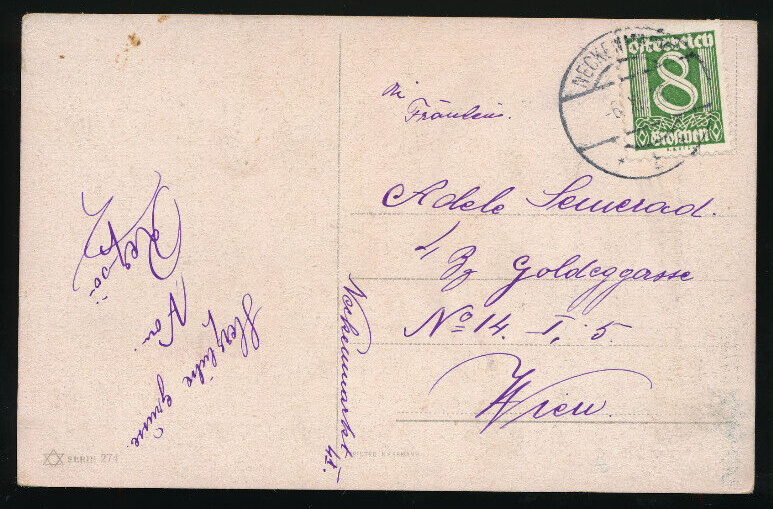 Herzliche Grüsse
Von
Neckenmarkt 4/I.
An
Fräulein.
Adele Semerad.
Goldeggasse
No 14. I, 5.
Wien.
Österreich
8
Groschen
NECKENM
SERIE 274